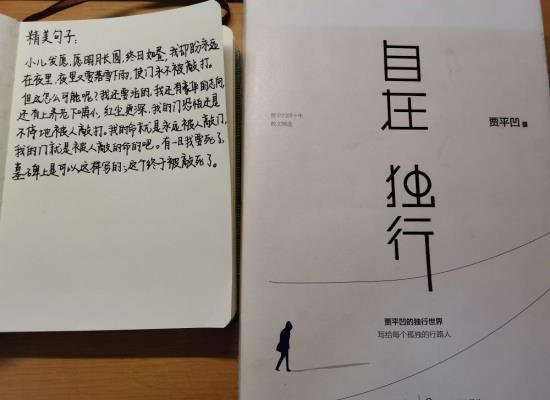 精美句子:
小儿发愿,愿明月长圆,终日如昼,我却盼永远
在夜里,夜里又要落雪下雨,使门永不被敲打。
但这怎么可能呢?我还要活的,我还有豪华的志向,
还有上养老下哺小,红尘更深,我的门恐怕还是
不停地被人敲打。我的命就是永远被人敲门,
我的门就是被人敲的命的吧。有一日我要死了,
墓碑上是可以这样写的:这个终于被敲死了。
自在
独行
贾平凹
贾平凹的独行世界
写给每个孤独的行路人